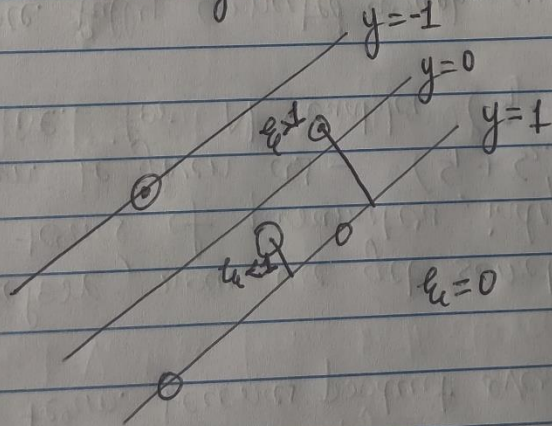 y = -1
y = 0
ξ>1
y = 1
ξ<1
ξ = 0